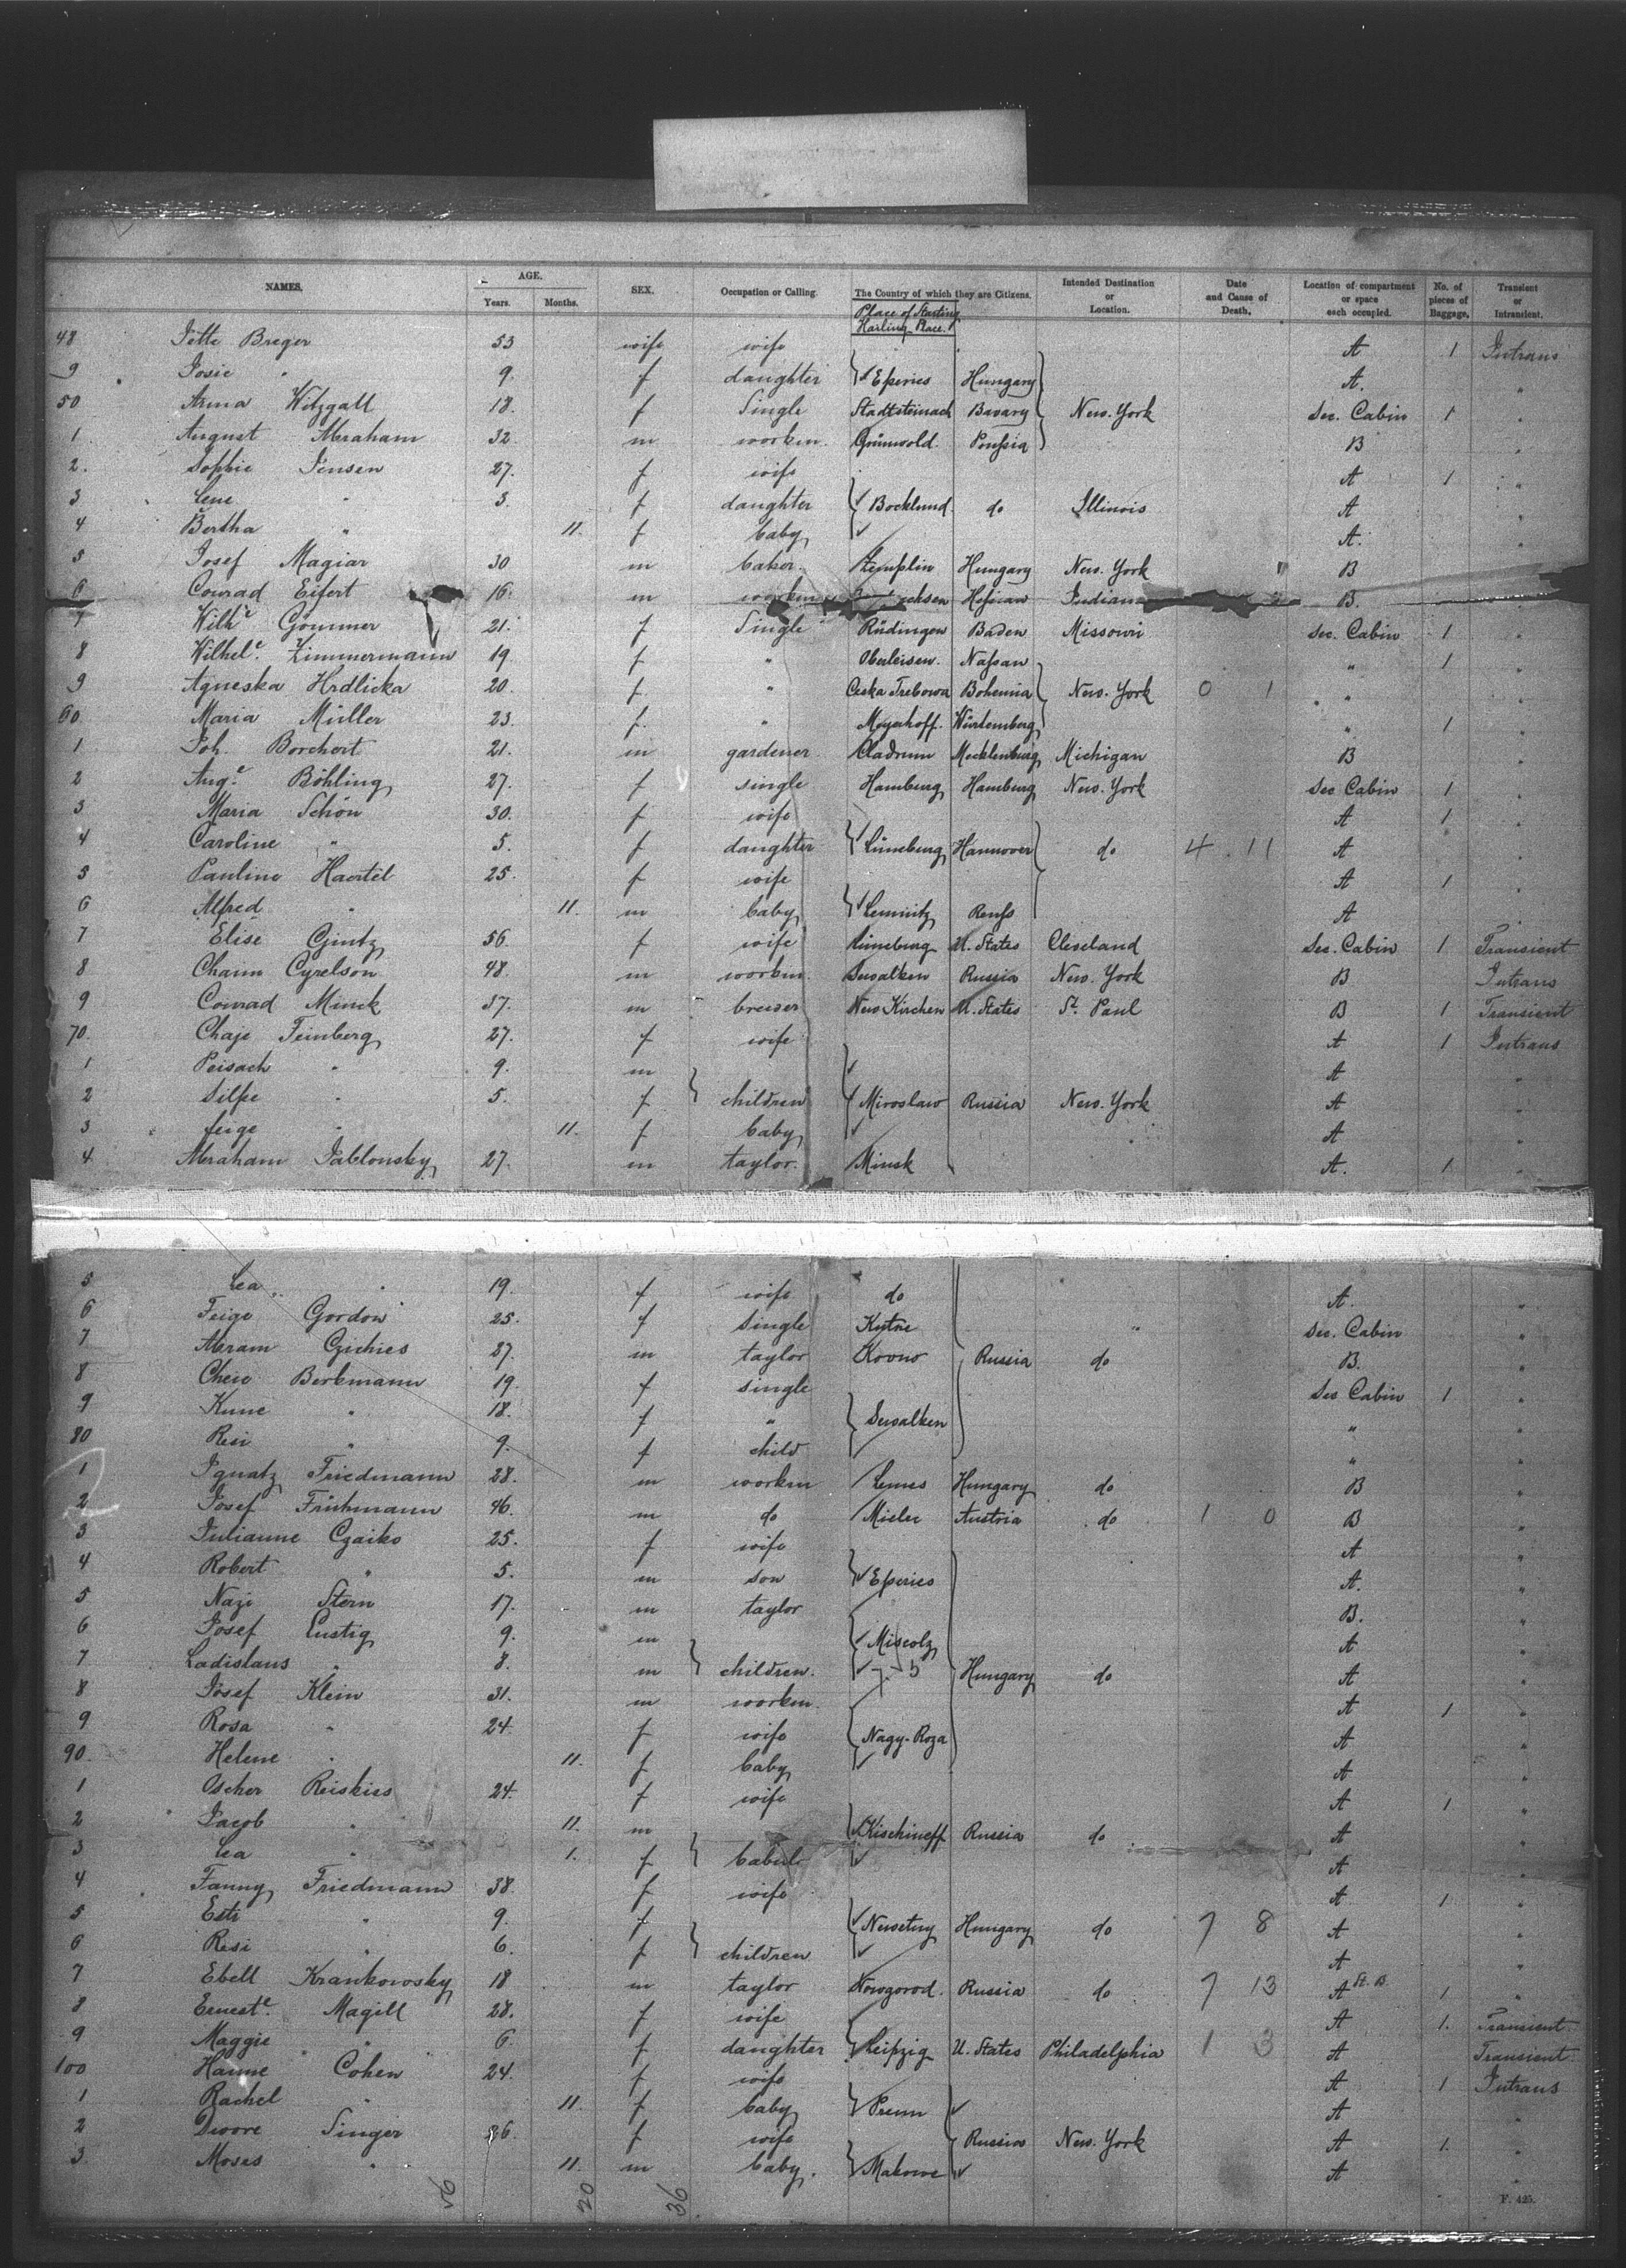 NAMES. AGE. Years. Months. SEX. Occupation or Calling. The Country of which they are Citizens. Intended Destination or Location. Date and Cause of Death. Location of compartment or space each occupied. No. of pieces of Baggage. Transient or Intransient.
Place of Starting
48 Jette Breger 53 wife wife A 1 Intrans
9 Josie " 9. f daughter Eperies Hungary A. "
50 Anna Witzgall 18. f Single Stadtsteinach Bavary New-York Sec. Cabin 1 "
1. August Abraham 32 m workm. Grünwold Preussia B "
2. Sophie Jensen 27. f wife A 1 "
3 Lene " 3. f daughter Bocklund do Illinois A "
4 Bertha " 11. f baby A. "
5 Josef Magiar 30 m baker. Zemplin Hungary New-York B
6 Conrad Eifert 16. m workm Hessian Indian B. "
7 Wilhe Gömmer 21. f Single Rüdingen Baden Missouri Sec. Cabin 1 "
8 Wilhele. Zimmermann 19. f " Oberleisen. Nassau " 1 "
9 Agneska Hrdlicka 20. f. " Ceska Trebowa Bohemia New-York 0 1 " "
60. Maria Müller 23. f. " Meyerhoff. Würtemberg " 1 "
1. Joh. Borchert 21. m gardener Cladrum Mecklenburg Michigan B "
2 Auge. Böhling 27. f single Hamburg Hamburg New-York Sec Cabin 1 "
3 Maria Schön 30. f wife A 1 "
4 Caroline " 5. f daughter Lüneburg Hannover do 4 11 A "
5 Pauline Haertel 25. f wife A 1 "
6 Alfred " 11. m baby Lemnitz Reuss A "
7 Elise Gintz 56. f wife Lüneburg U. States Cleveland Sec. Cabin 1 Transient
8 Chaim Cyrelson 48. m workm. Suwalken Russia New-York B Intrans
9 Conrad Minck 37. m brewer New Kirchen U. States St. Paul B 1 Transient
70. Chaje Feinberg 27. f wife A 1 Intrans
1 Peisach " 9. m A "
2 Silpe " 5. f children Miroslaw Russia New-York A "
3 Feige " 11. f baby A "
4 Abraham Jablonsky 27. m taylor. Minsk A. 1 "
5 Lea " 19. f wife do A. "
6 Feige Gordon 25. f Single Kutne " Sec. Cabin "
7 Abram Czichies 27. m taylor Kovno Russia do B. "
8 Cheie Berkmann 19. f single Sec Cabin 1 "
9 Kune " 18. f " Suwalken " "
80 Resi " 9. f child " "
1 Ignatz Friedmann 28. m workm Lemes Hungary do B "
2 Josef Frühmann 46. m do Mielec Austria do 1 0 B "
3 Julianne Czaiko 25. f wife A "
4 Robert " 5. m son Eperies A. "
5 Nazi Stern 17. m taylor B. "
6 Josef Lustig 9. m Miscolz A "
7 Ladislaus " 8. m children. Hungary do A "
8 Josef Klein 31. m workm. A 1 "
9 Rosa " 24. f wife Nagy-Roza A "
90. Helene " 11. f baby A "
1 Oscher Reiskiss 24. f wife A 1 "
2 Jacob " 11. m Kischineff Russia do A "
3 Lea " 1. f A "
4 Fanny Friedmann 38. f wife A 1 "
5 Esti " 9. f Hungary do 7 8 A "
6 Resi " 6. f children A "
7 Ebell Krankowsky 18 m taylor Nowgorod. Russia do 7 13 A St. B. 1 "
8 Erneste. Magill 28. f wife A 1. Transient
9 Maggie " 6. f daughter Leipzig U. States Philadelphia 1 3 A Transient
100 Hanne Cohen 24. f wife A 1 Intrans
1 Rachel " 11. f baby Prenn A "
2 Dwore Singer 26. f wife Russia New-York A 1. "
3. Moses " 11. m baby. Makowe A "
20 36
F. 425.